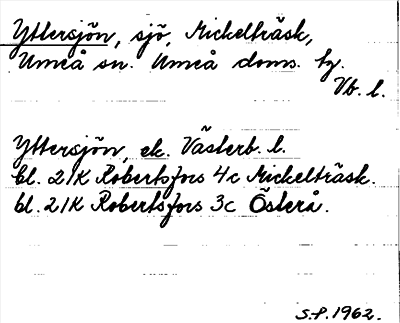 Yttersjön, sjö, Mickelträsk,
Umeå sn. Umeå doms. hg.
Vb. l.
Yttersjön, ek. Västerb. l.
bl. 21K Robertsfors 4c Mickelträsk.
bl. 21K Robertsfors 3c Österå.
S.P. 1962.